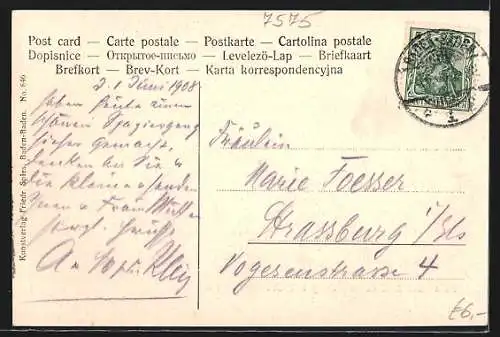 7575
Post card — Carte postale — Postkarte — Cartolina postale
Dopisnice — Открытое-письмо — Levelezö-Lap — Briefkaart
Brefkort — Brev-Kort — Karta korrespondencyjna
2. Juni 1908
haben heute einen
schönen Spaziergang
hierher gemacht,
denken an Sie &
die kleine & senden
Ihnen & Frau
herzl. Grüße
Kunstverlag Friedr. Spies, Baden-Baden. No. 646
Fräulein
Marie Foesser
Strassburg i/Els
Vogesenstrasse 4
£6,-